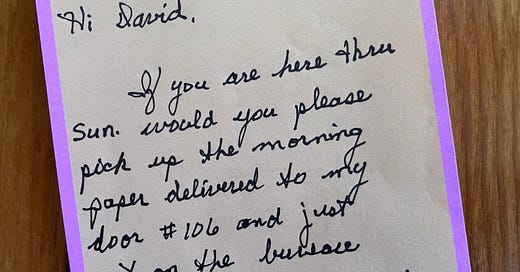 Hi David,
If you are here thru
Sun. would you please
pick up the morning
paper delivered to my
door #106 and just
on the bureau